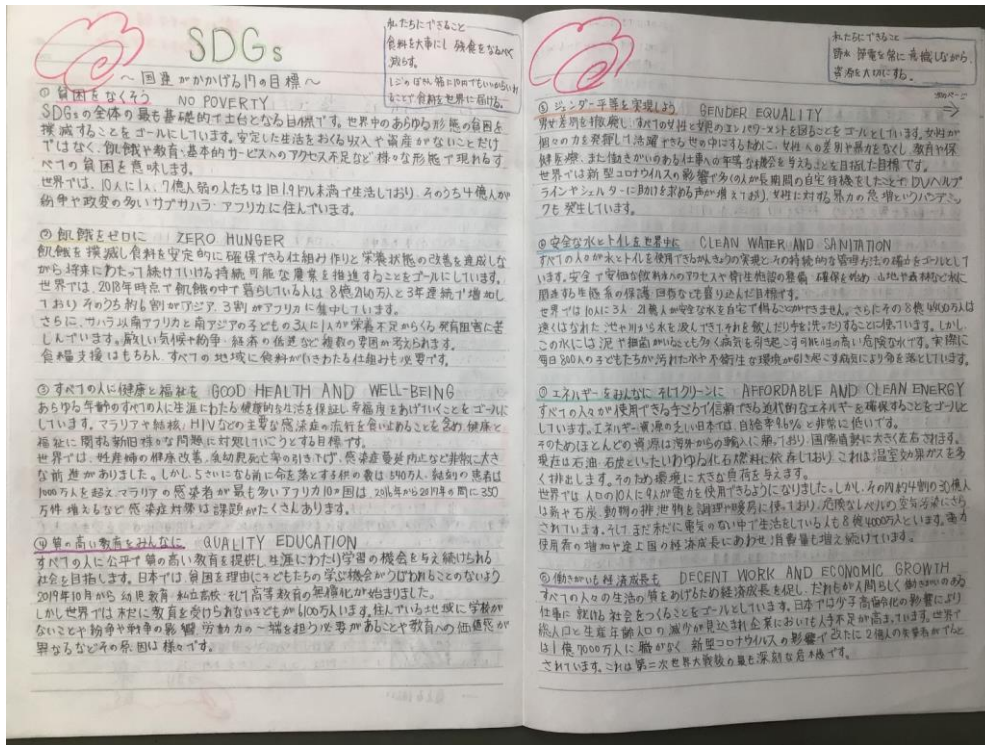 SDGs
～国連がかかげる17の目標～
私たちにできること
食料を大事にし 残食をなるべく
減らす。
①貧困をなくそう NO POVERTY
SDGsの全体の最も基礎的で土台となる目標です。世界中のあらゆる形態の貧困を
撲滅することをゴールにしています。安定した生活をおくる収入や資産がないことだけ
ではなく、飢餓や教育・基本的サービスへのアクセス不足など様々な形態で現れるす
べての貧困を意味します。
世界では、10人に1人、7億人弱の人たちは1日1.9ドル未満で生活しており、そのうち4億人が
紛争や政変の多いサブサハラ・アフリカに住んでいます。
②飢餓をゼロに ZERO HUNGER
飢餓を撲滅し食料を安定的に確保できる仕組み作りと栄養状態の改善を達成しな
がら将来にわたって続けていける持続可能な農業を推進することをゴールにしています。
世界では、2018年時点で飢餓の中で暮らしている人は8億2160万人と3年連続で増加し
ており そのうち約6割がアジア、3割がアフリカに集中しています。
さらに、サハラ以南アフリカと南アジアの子どもの3人に1人が栄養不足からくる発育阻害に苦
しんでいます。厳しい気候や紛争・経済の低迷など複数の要因が考えられます。
食糧支援はもちろん、すべての地域に食料がいきわたる仕組みも必要です。
③すべての人に健康と福祉を GOOD HEALTH AND WELL-BEING
あらゆる年齢のすべての人に生涯にわたる健康的な生活を保証し幸福度をあげていくことをゴールに
しています。マラリアや結核、HIVなどの主要な感染症の流行を食い止めることを含め、健康と
福祉に関する新旧様々な問題に対処していこうとする目標です。
世界では、妊産婦の健康改善、乳幼児死亡率の引き下げ、感染症蔓延防止など非常に大き
な前進がありました。しかし、5さいになる前に命を落とす子供の数は540万人、結核の患者は
1000万人を超え、マラリアの感染者が最も多いアフリカ10ヵ国は、2016年から2017年の間に350
万件増えるなど感染症対策は課題がたくさんあります。
④質の高い教育をみんなに QUALITY EDUCATION
すべての人に公平で質の高い教育を提供し生涯にわたり学習の機会を与え続けられる
社会を目指します。日本では、貧困を理由に子どもたちの学ぶ機会がうばわれることのないよう
2019年10月から幼児教育・私立高校・そして高等教育の無償化が始まりました。
しかし世界では未だに教育を受けられない子どもが6100万人います。住んでいる土地に学校が
ないことや紛争や戦争の影響、労働力の一端を担う必要があることや教育への価値感が
異なるなどその原因は様々です。
私たちにできること
節水 節電を常に意識しながら、
資源を大切にする。
⑤ジェンダー平等を実現しよう GENDER EQUALITY
男女差別を撤廃し、すべての女性と女児のエンパワーメントを図ることをゴールとしています。女性が
個々の力を発揮して活躍できる世の中にするために、女性への差別や暴力をなくし、教育や保
健医療、また働きがいのある仕事への平等な機会を与えることを目指した目標です。
世界では新型コロナウイルスの影響で多くの人が長期間の自宅待機をしたことで、DVヘルプ
ラインやシェルターに助けを求める声が増えており、女性に対する暴力の急増というパンデミッ
クも発生しています。
⑥安全な水とトイレを世界中に CLEAN WATER AND SANITATION
すべての人々が水とトイレを使用できるかんきょうの実現とその持続的な管理方法の確立をゴールとして
います。安全で安価な飲料水へのアクセスや衛生施設の整備 確保を始め、山地や森林など水に
関連する生態系の保護・回復なども盛り込んだ目標です。
世界では10人に3人・21億人が安全な水を自宅で得ることができません。さらにその8億4400万人は
遠くはなれた池や川から水を汲んできてそれを飲んだり手を洗ったりすることに使っています。しかし、
この水には泥や細菌がいることも多く病気を引き起こす可能性の高い危険な水です。実際に
毎日800人の子どもたちが汚れた水や不衛生な環境が引き起こす病気により命を落としています。
⑦エネルギーをみんなに そしてクリーンに AFFORDABLE AND CLEAN ENERGY
すべての人々が使用できる手ごろで信頼できる近代的なエネルギーを確保することをゴールと
しています。エネルギー資源の乏しい日本では、自給率9.6%と非常に低いです。
そのためほとんどの資源は海外からの輸入に頼っており、国際情勢に大きく左右されます。
現在は石油・石炭といったいわゆる化石燃料に依存しており、これは温室効果ガスを多
く排出します。そのため環境に大きな負荷を与えます。
世界では人口の10人に9人が電力を使用できるようになりました。しかし、その内約4割の30億人
は薪や石炭、動物の排泄物を調理や暖房に使っており、危険なレベルの空気汚染にさら
されています。そして、まだ未だに電気のない中で生活をしている人も8億4000万人といます。電力
使用者の増加や途上国の経済成長にあわせ消費量も増え続けています。
⑧働きがいも経済成長も DECENT WORK AND ECONOMIC GROWTH
すべての人々の生活の質をあげるため経済成長を促し、だれもが人間らしく働きがいのある
仕事に就ける社会をつくることをゴールとしています。日本では少子高齢化の影響により
総人口と生産年齢人口の減少が見込まれ企業においても人手不足が高まっています。世界で
は1億7000万人に職がなく 新型コロナウイルスの影響で改たに2億人の失業者がでると
されています。これは第二次世界大戦後の最も深刻な危機です。